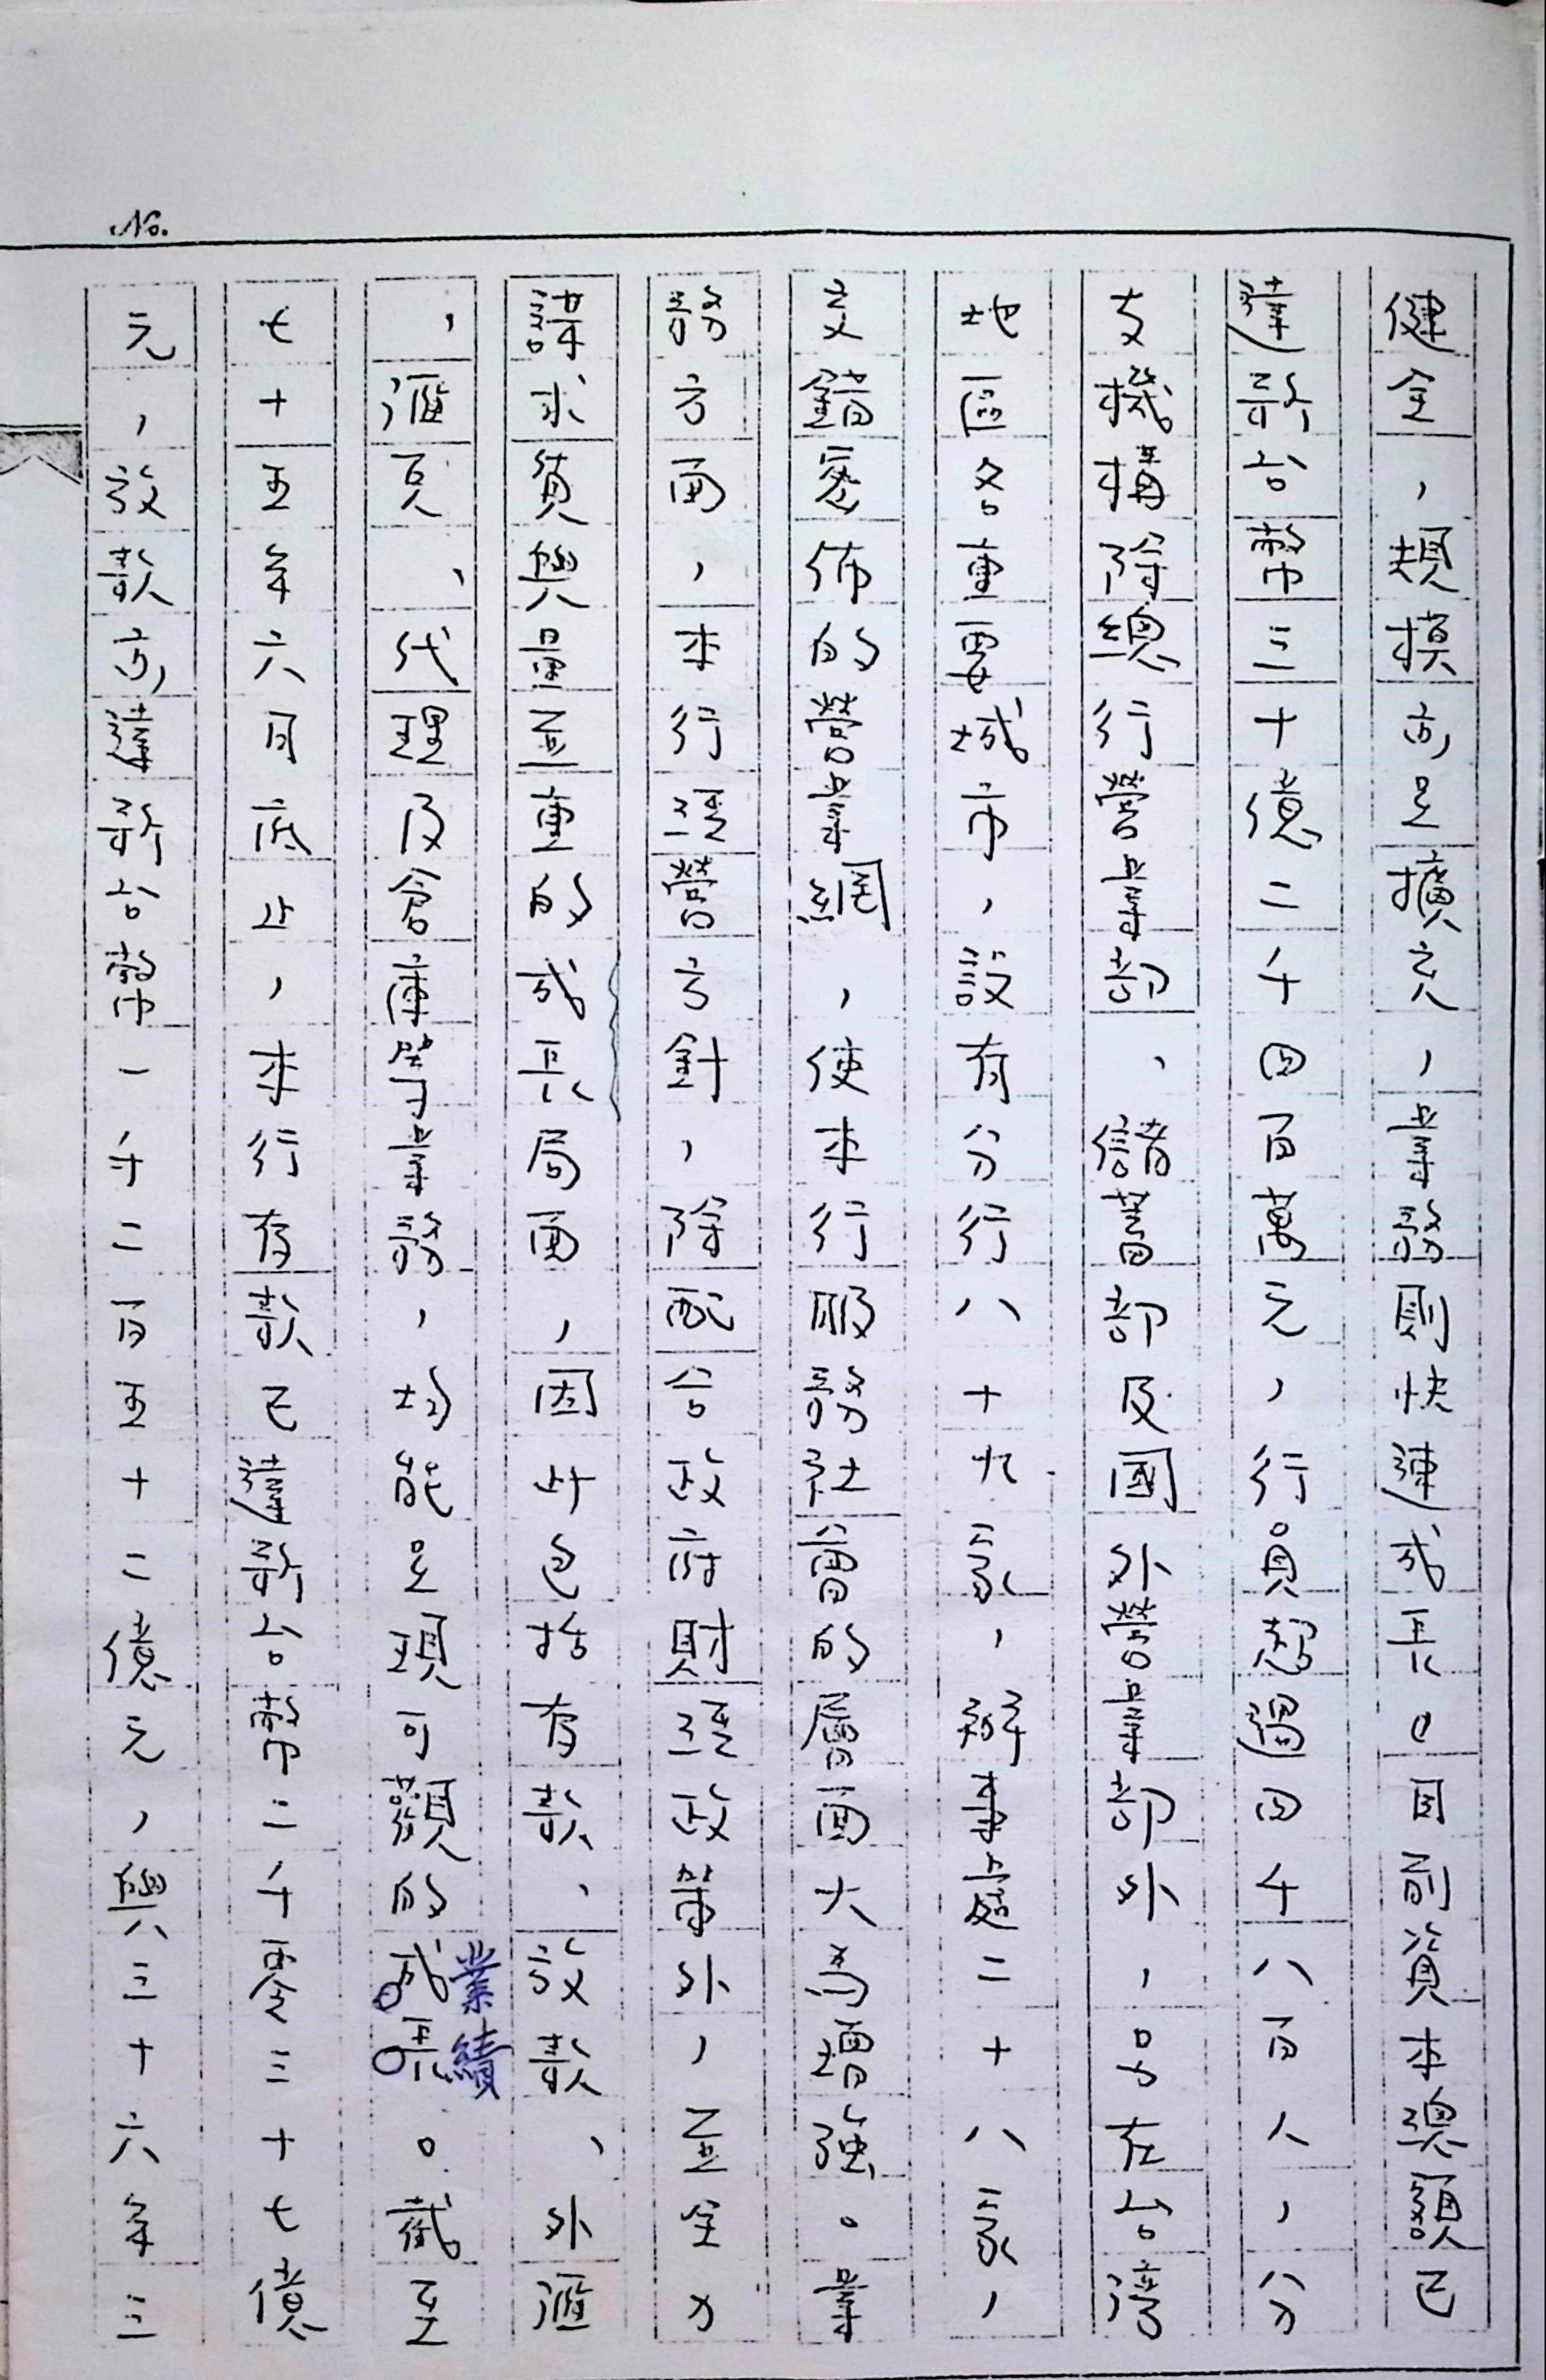 健全，規模亦呈擴充，業務則快速成長。目前資本總額已
達新台幣三十億二千四百萬元，行員超過四千八百人，分
支機構除總行營業部、儲蓄部及國外營業部外，另在台灣
地區各重要城市，設有分行八十九家，辦事處二十八家，
交錯密佈的營業網，使本行服務社會的層面大為增強。業
務方面，本行經營方針，除配合政府財經政策外，並全力
謀求質與量並重的成長局面，因此包括存款、放款、外匯
，匯兌、代理及倉庫等業務，均能呈現可觀的成長業績。截至
七十五年六月底止，本行存款已達新台幣二千零三十七億
元，放款亦達新台幣一千二百五十二億元，與三十六年三
No.